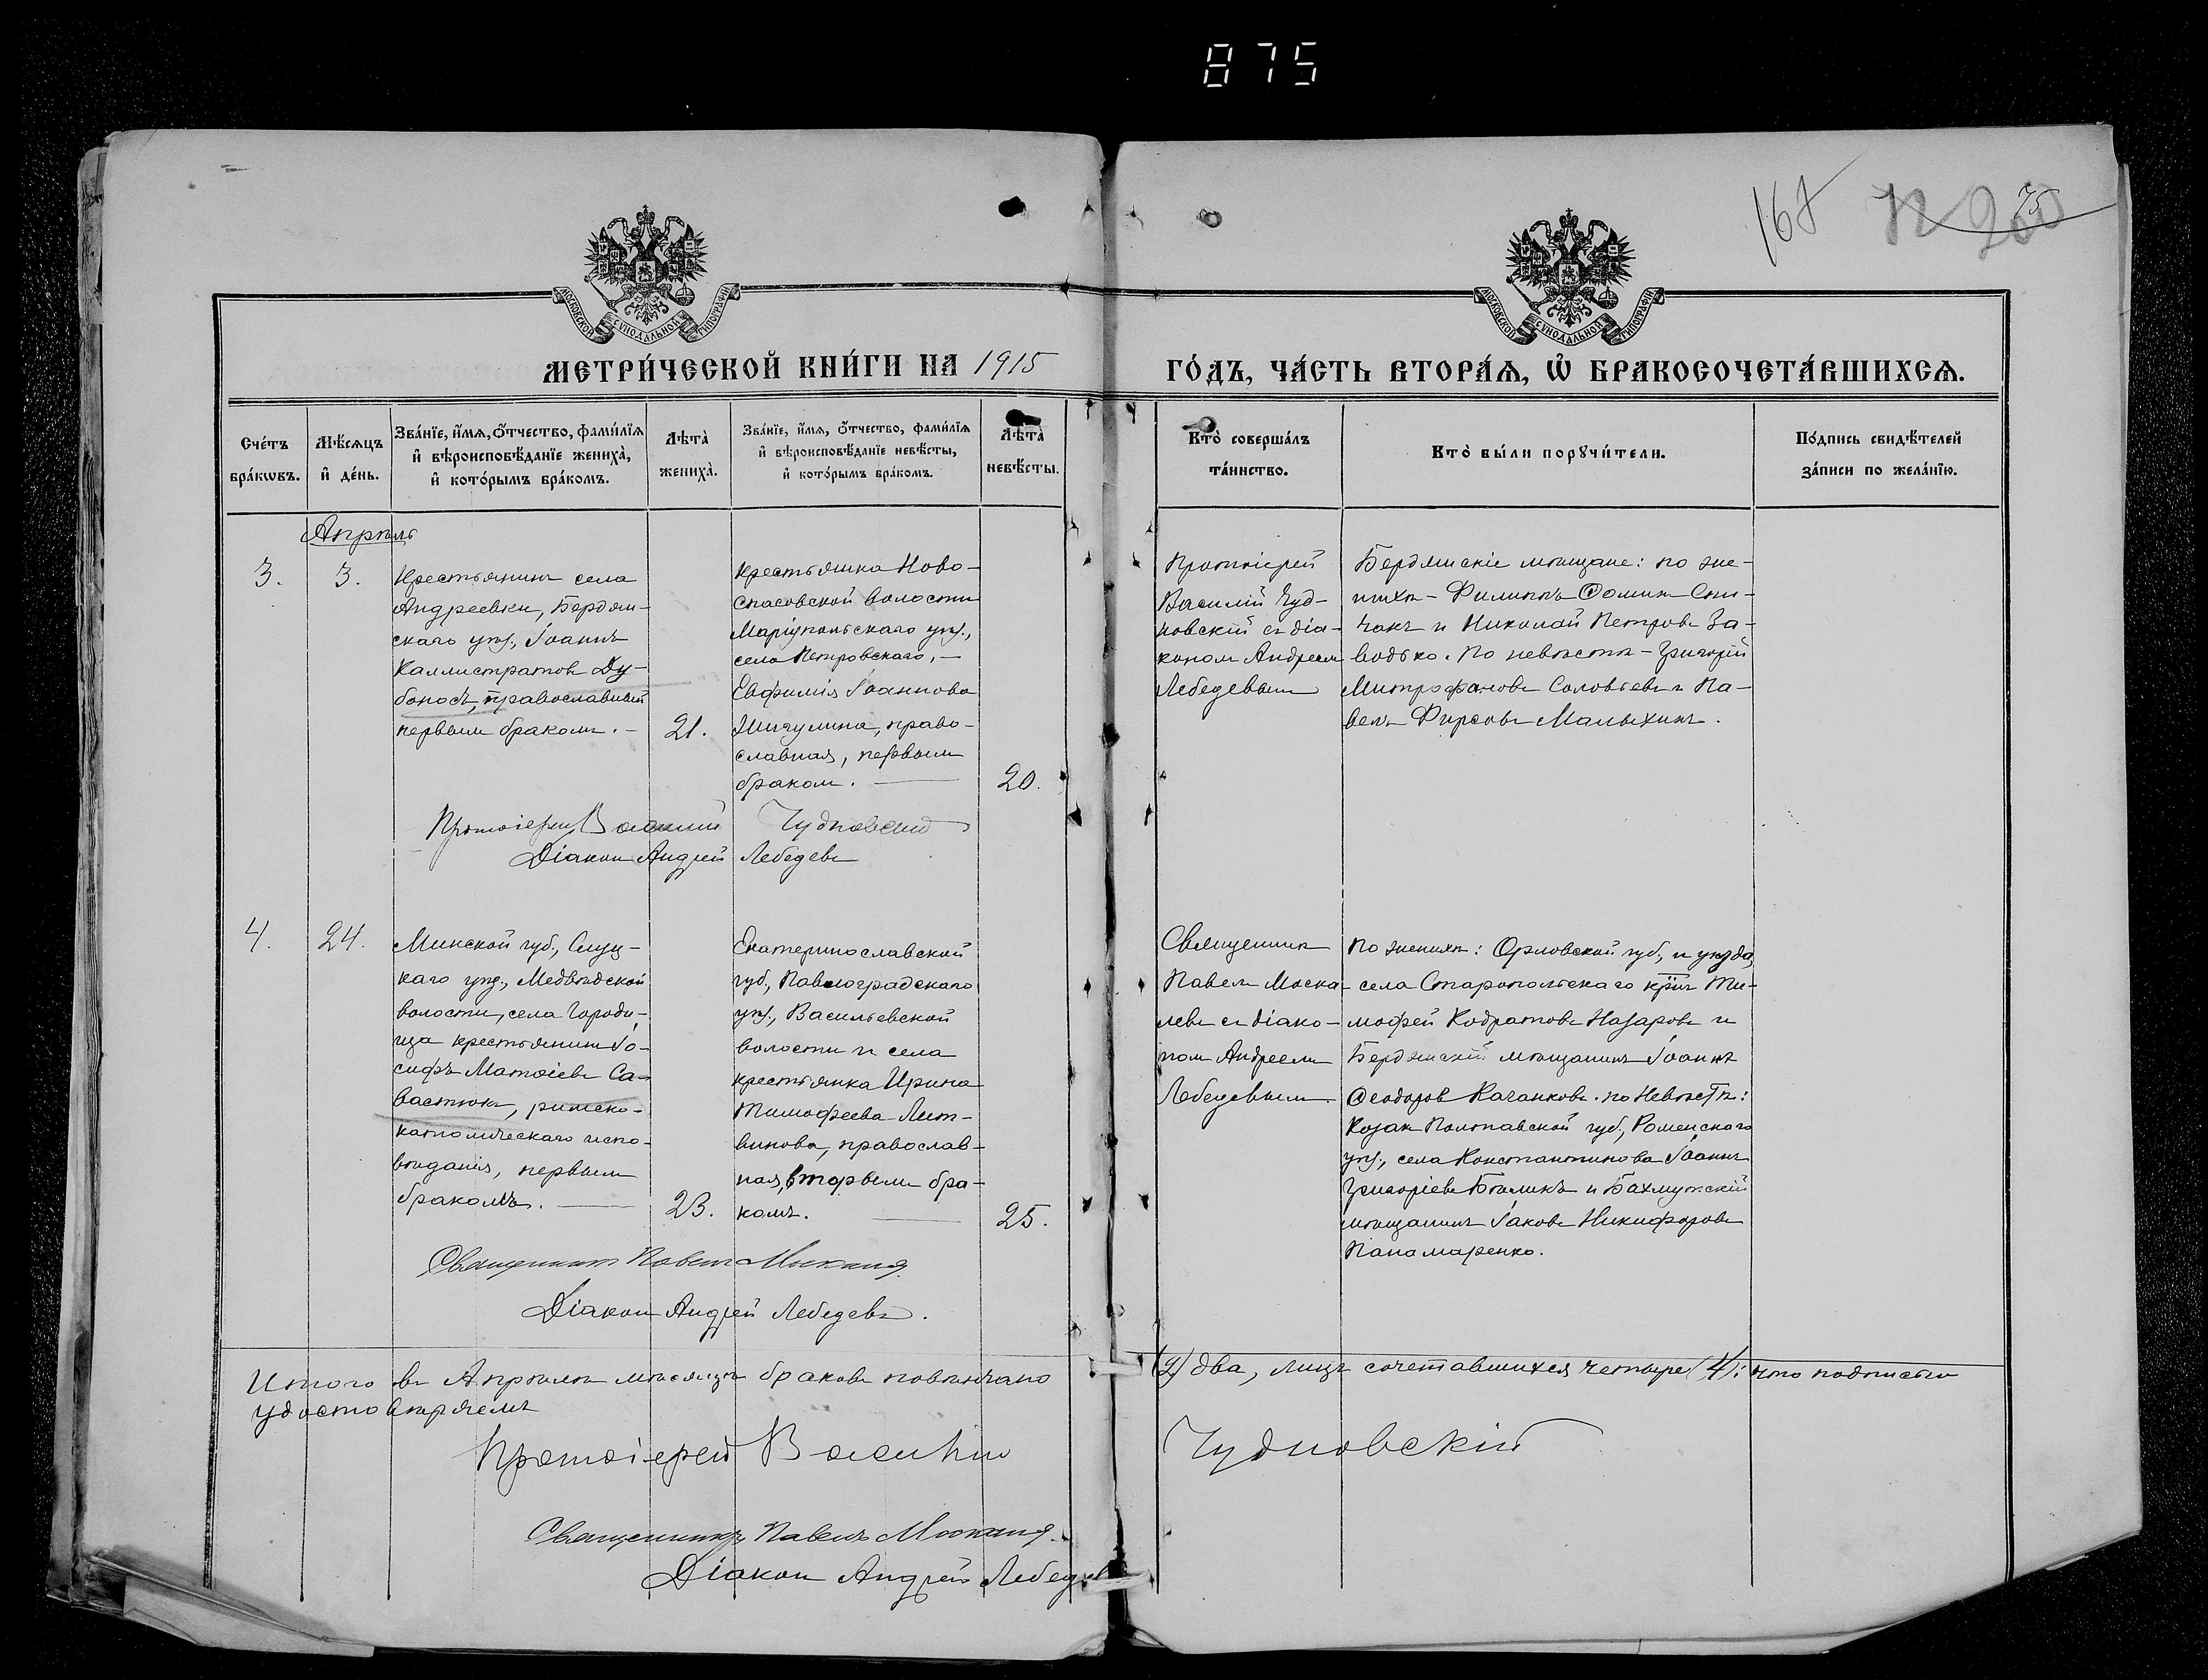 875
167
75
МОСКОВСКОЙ СѴНОДАЛЬНОЙ ТИПОГРАФІИ
МОСКОВСКОЙ СѴНОДАЛЬНОЙ ТИПОГРАФІИ
МЕТРИ́ЧЕСКОЙ КНИ́ГИ НА 1915
ГО́ДЪ, ЧА́СТЬ ВТОРА́Ѧ, Ѡ҆ БРАКОСОЧЕТА́ВШИХСѦ.
Сче́тъ
бра́кѡвъ.
Мѣ́сѧцъ
и҆ де́нь.
Зва́нїе, и҆́мѧ, ѻ҆́тчество, фами́лїѧ
и҆ вѣроисповѣ́данїе жениха̀,
и҆ кото́рымъ бра́комъ.
Лѣта̀
жениха̀.
Зва́нїе, и҆́мѧ, ѻ҆́тчество, фами́лїѧ
и҆ вѣроисповѣ́данїе невѣ́сты,
и҆ кото́рымъ бра́комъ.
Лѣта̀
невѣ́сты.
Кто̀ соверша́лъ
та́инство.
Кто̀ бы́ли порꙋчи́тели.
По́дпись свидѣ́телей
за́писи по жела́нїю.
Апрѣль
3.
3.
Крестьянинъ села
Андреевки, Бердян-
скаго уѣз., Іоаннъ
Каллистратов Ду-
боносъ, православный
первымъ бракомъ. -
21.
крестьянка Ново-
спасовской волости
Маріупольскаго уѣз.,
села Петровскаго, —
Евфимія Іоаннова
Шигулина, право-
славная, первым
браком. —
20.
Протоіерей
Василій Чуд-
новскій съ діа-
коном Андреем
Лебедевым
Бердянскіе мѣщане: по же-
нихѣ - Филиппъ Ѳомин Спи-
чакъ и Николай Петровъ За-
водько. По невѣстѣ - Григорій
Митрофановъ Соловьевъ и Па-
велъ Фирсовъ Малыхинъ.
Протоіерей Василій Чудновскій
Діакон Андрей Лебедевъ
4.
24.
Минской губ., Слуц-
каго уѣз., Медвѣдской
волости, села Городи-
ща крестьянин Іо-
сифъ Матѳіевъ Са-
вастюкъ, римско-
католическаго испо-
вѣданія, первым
бракомъ. —
23.
Екатеринославской
губ., Павлоградскаго
уѣз., Васильевской
волости и села
крестьянка Ирина
Тимофеева Лит-
винова, православ-
ная, вторым бра-
комъ. —
25.
Священник
Павел Моска-
левъ съ діако-
ном Андреем
Лебедевым
По женихѣ: Орловской губ., и уѣзда,
села Старопольскаго кр̃нъ Ти-
мофей Кодратовъ Назаровъ и
Бердянскій мѣщанинъ Іоаннъ
Ѳеодоров Качанковъ. по Невѣстѣ:
Козакъ Полтавской губ., Роменскаго
уѣз., села Константинова Іоаннъ
Григоріевъ Бѣликъ и Бахмутскій
мѣщанинъ Іаковъ Никифоровъ
Панамаренко.
Священникъ Павел
Діакон Андрей Лебедевъ.
Итого въ Апрѣлѣ мѣсяцѣ браковъ повѣнчано (2) два, лицъ сочетавшихся четыре (4); что подписью
удостовѣряемъ
Протоіерей Василій Чудновскій
Священникъ Павелъ
Діакон Андрей Лебедев